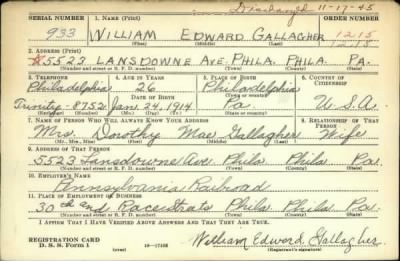 Discharged 11-17-45
SERIAL NUMBER 1. NAME (Print) ORDER NUMBER
933 WILLIAM EDWARD GALLAGHER 1215
(First) (Middle) (Last)
2. ADDRESS (Print)
5523 LANSDOWNE AVE. PHILA. PHILA. PA.
(Number and street or R. F. D. number) (Town) (County) (State)
3. TELEPHONE 4. AGE IN YEARS 5. PLACE OF BIRTH 6. COUNTRY OF CITIZENSHIP
Philadelphia 26 Philadelphia
(Town or county)
Trinity-8752 Jan. 24, 1914 Pa U.S.A.
7. NAME OF PERSON WHO WILL ALWAYS KNOW YOUR ADDRESS 8. RELATIONSHIP OF THAT PERSON
Mrs. Dorothy Mae Gallagher Wife
(Mr., Mrs., Miss) (First) (Middle) (Last)
9. ADDRESS OF THAT PERSON
5523 Lansdowne Ave. Phila Phila Pa.
(Number and street or R. F. D. number) (Town) (County) (State)
10. EMPLOYER'S NAME
Pennsylvania Railroad
11. PLACE OF EMPLOYMENT OR BUSINESS
30th and Race Strats Phila. Phila. Pa.
(Number and street or R. F. D. number) (Town) (County) (State)
I AFFIRM THAT I HAVE VERIFIED ABOVE ANSWERS AND THAT THEY ARE TRUE.
REGISTRATION CARD
D. S. S. Form 1 (over) 16-17105 William Edward Gallagher
(Registrant's signature)